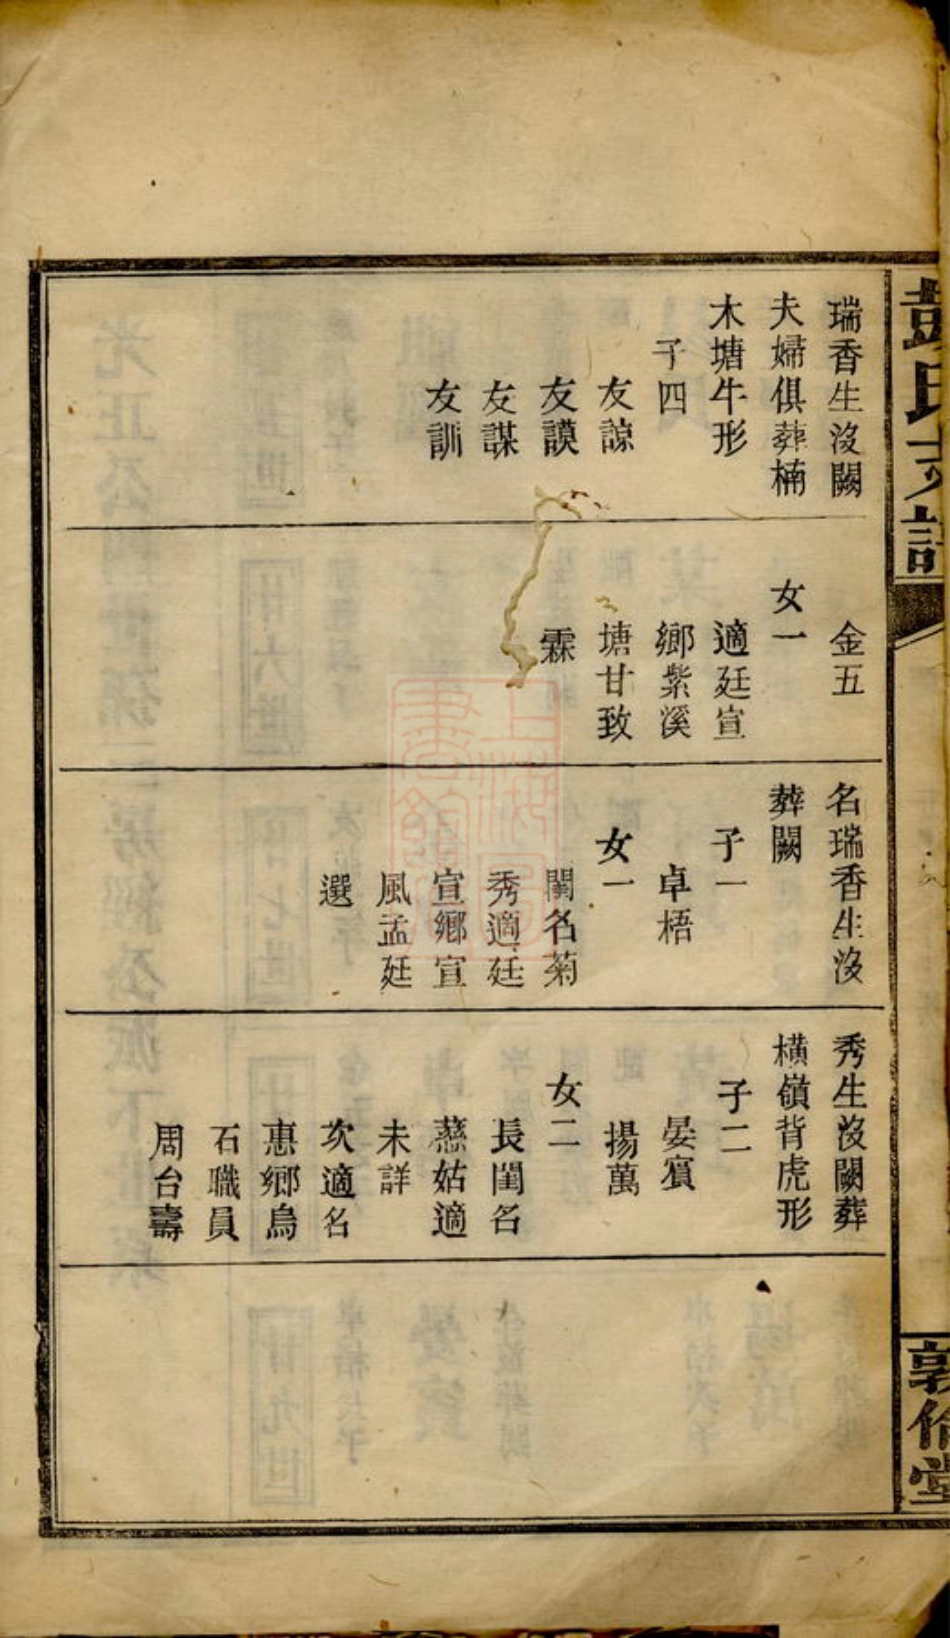 彭氏支譜
敦倫堂
瑞香生沒闕
夫婦俱葬楠
木塘牛形
子四
友諒
友謨
友謀
友訓
金五
女一
適廷宣
鄉紫溪
塘甘致
霖
名瑞香生沒
葬闕
子一
卓梧
女一
閨名菊
秀適廷
宣鄉宣
風孟廷
選
秀生沒闕葬
橫嶺背虎形
子二
晏賓
揚萬
女二
長閨名
慈姑適
未詳
次適名
惠鄉烏
石職員
周台壽
上海圖書館藏